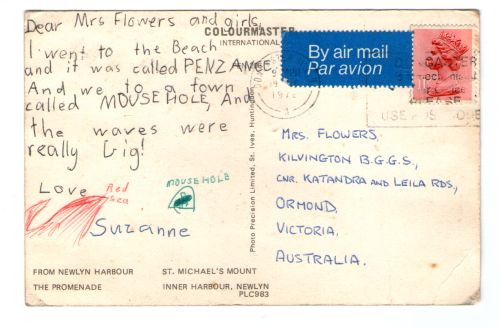 Dear Mrs Flowers and girls,
I went to the Beach
and it was called PENZANCE
And we to a town
called MOUSEHOLE, And
the waves were
really big!
Love
Red
sea
MOUSEHOLE
Suzanne
COLOURMASTER
INTERNATIONAL
By air mail
Par avion
USE POSTCODE
MRS. FLOWERS,
KILVINGTON B.G.G.S.,
CNR. KATANDRA AND LEILA RDS,
ORMOND,
VICTORIA.
AUSTRALIA.
Photo Precision Limited, St. Ives, Huntingdon
FROM NEWLYN HARBOUR
ST. MICHAEL'S MOUNT
THE PROMENADE
INNER HARBOUR, NEWLYN
PLC983